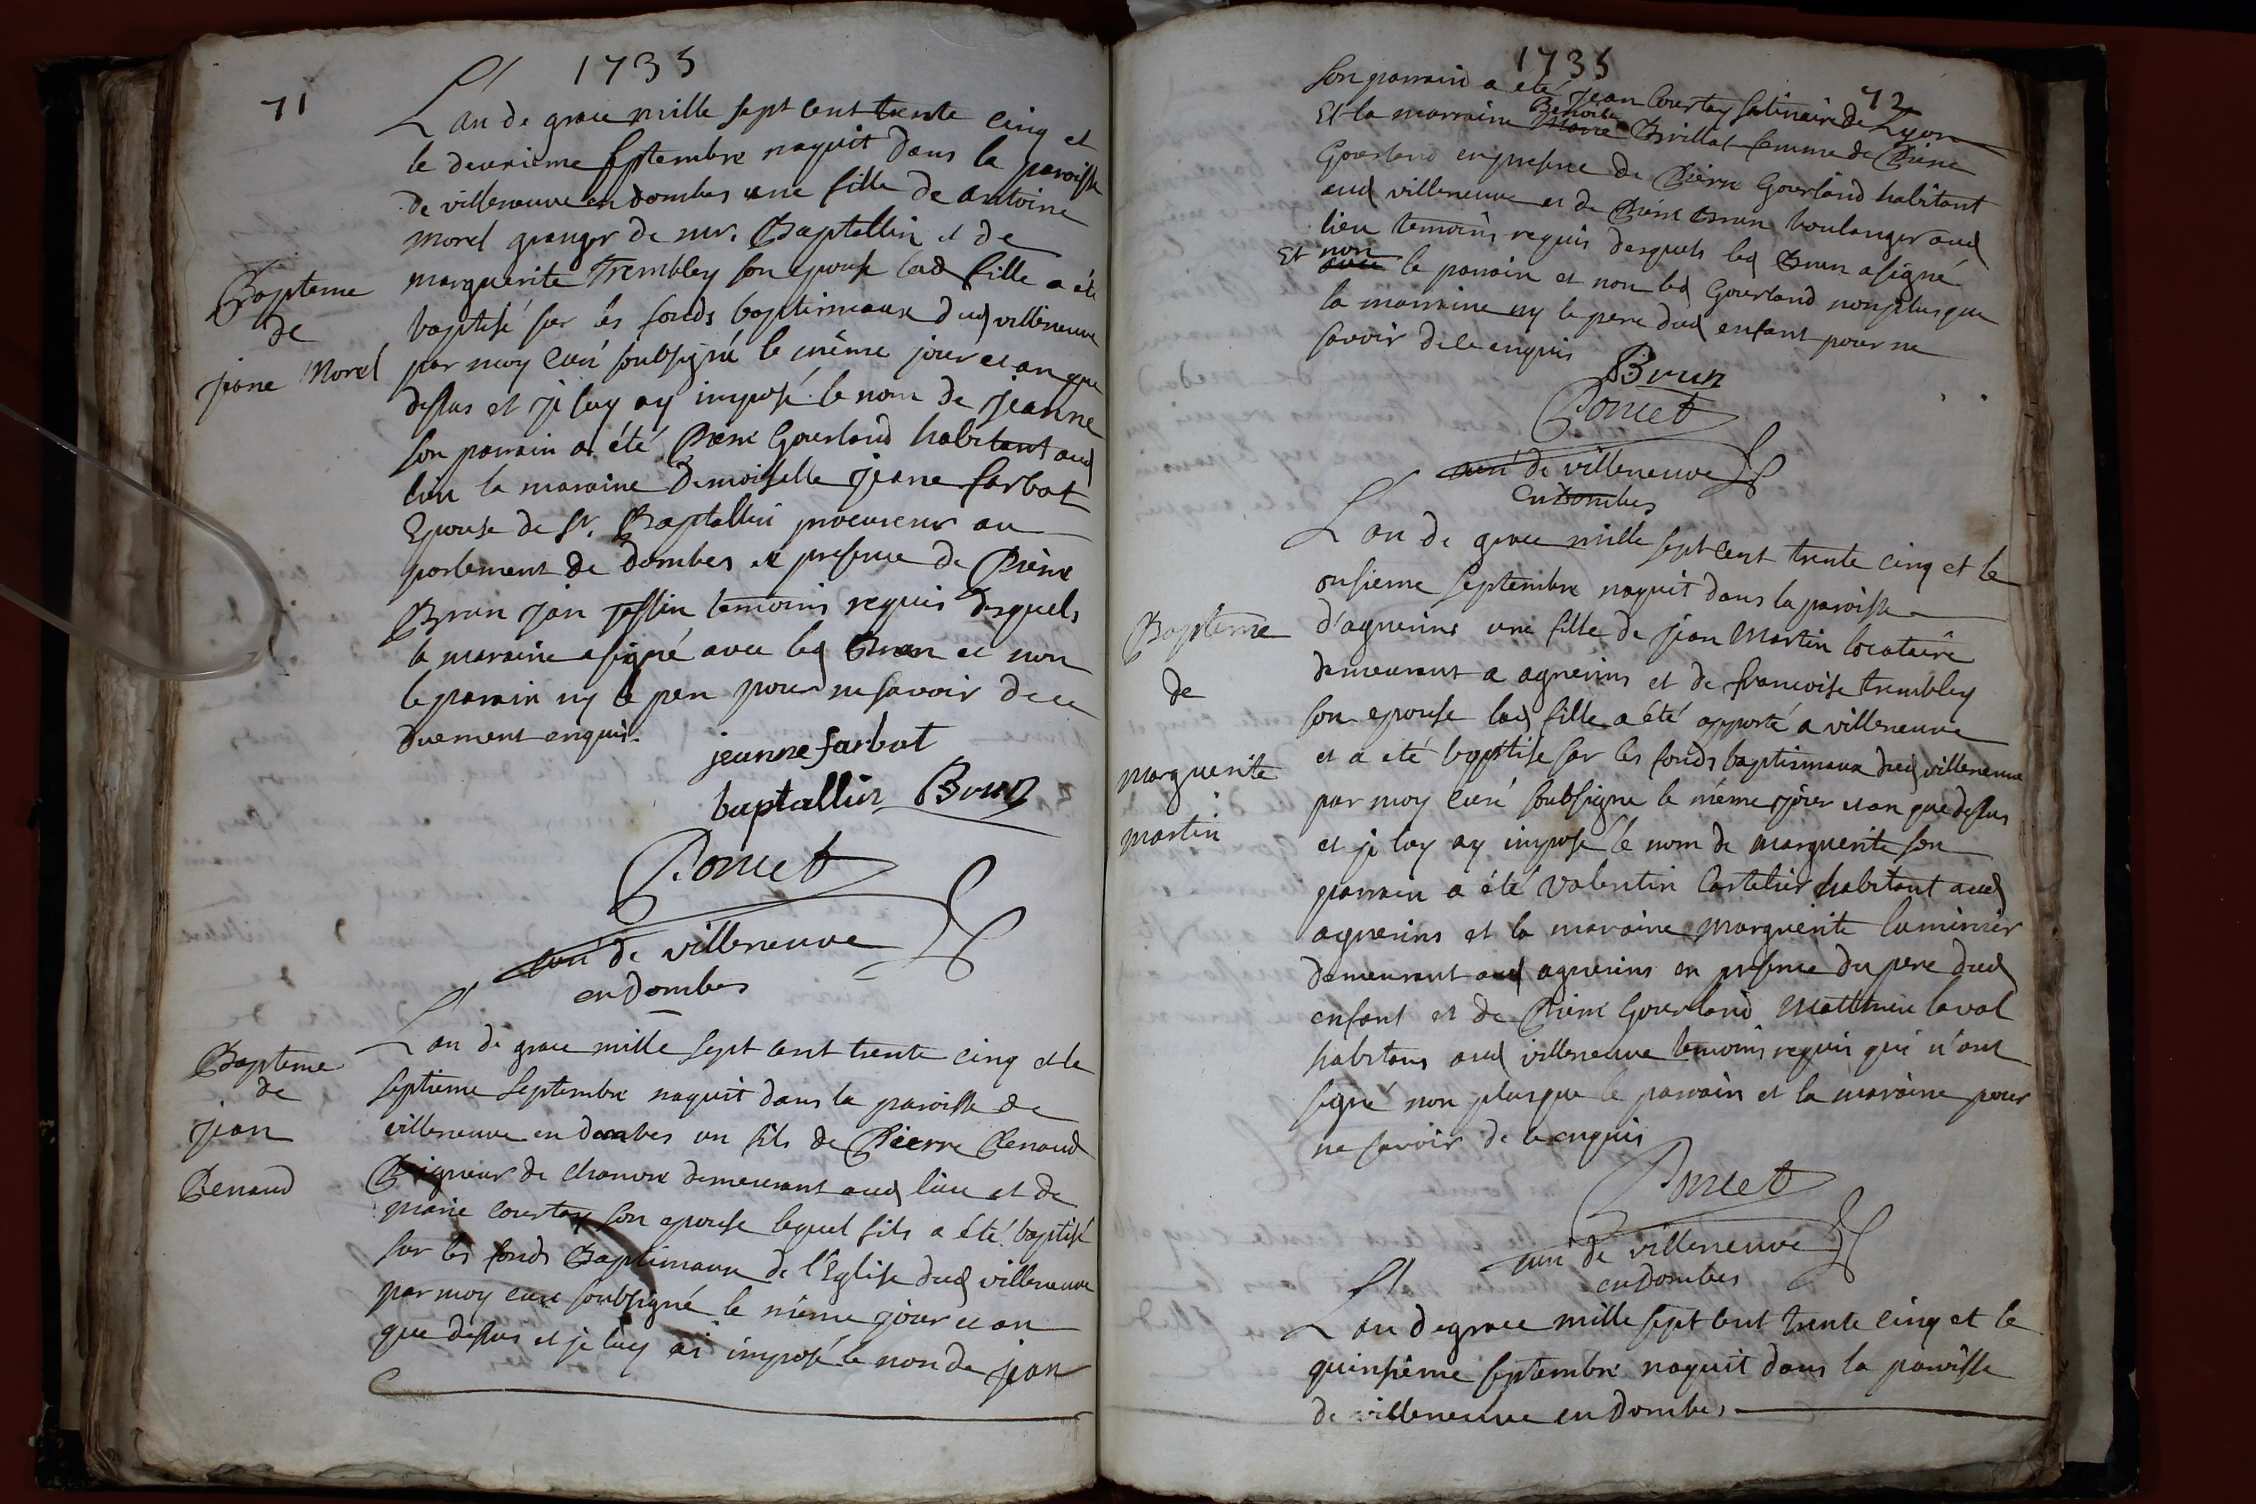 1735
71
L'an de grace mille sept cent trente cinq et
le deuxieme septembre naquit dans la paroisse
de villeneuve en dombes une fille de antoine
morel granger de mr. Baptallin et de
marguerite Trembley son epouse lad fille a été
baptisé sur les fonds baptismaux dud villeneuve
par moy curé soubsigné le même jour et an que
dessus et je luy ay imposé le nom de jeanne
son parrain a été Pierre Gourland habitant aud
lieu la maraine Demoiselle jeane farbat
Epouse de Sr. Baptallin procureur au
parlement de dombes en presence de Pierre
Brun jan testin temoins requis desquels
la maraine a signé avec led Brun et non
le parrain ny le pere pour ne savoir de ce
duement enquis.
Bapteme
de
jeane Morel
jeanne farbat
baptallin Brun
Poncet
curé de villeneuve
en dombes
L'an de grace mille sept cent trente cinq et le
septieme septembre naquit dans la paroisse de
villeneuve en dombes un fils de Pierre Renaud
Peigneur de chanvre demeurant aud lieu et de
marie courtay son epouse lequel fils a été baptisé
sur les fonds Baptimaux de l'Eglise dud villeneuve
par moy curé soubsigné le même jour et an
que dessus et je luy ai imposé le nom de jean
Bapteme
de
jean
Renaud
1735
72
son parrain a été jean Courtay satinaire de Lyon
Et la marraine Benoite Brillat femme de Pierre
Gourland en presence de Pierre Gourland habitant
aud villeneuve et de Pierre Brun boulanger aud
lieu temoins requis desquels led Brun a signé
Et non le parrain et non led Gourland non plus que
la marraine ny le pere dud enfant pour ne
savoir de ce enquis
Brun
Poncet
curé de villeneuve
en Dombes
L'an de grace mille sept cent trente cinq et le
onsieme septembre naquit dans la paroisse
d'agnerins une fille de jean Martin locataire
demeurant a agnerins et de francoise trembley
son epouse lad fille a été apporté a villeneuve
et a eté baptisé sur les fonds baptismaux dud villeneuve
par moy curé soubsigné le même jour et an que dessus
et je luy ay imposé le nom de marguerite son
parrain a été valentin Cartelier habitant aud
agnerins et la maraine marguerite luminier
demeurant aud agnerins en presence du pere dud
enfant et de Pierre Gourland Matthieu laval
habitans aud villeneuve temoins requis qui n'ont
signé non plus que le parrain et la maraine pour
ne savoir de ce enquis
Bapteme
de
marguerite
martin
Poncet
curé de villeneuve
en dombes
L'an de grace mille sept cent trente cinq et le
quinsième septembre naquit dans la paroisse
de villeneuve en dombes